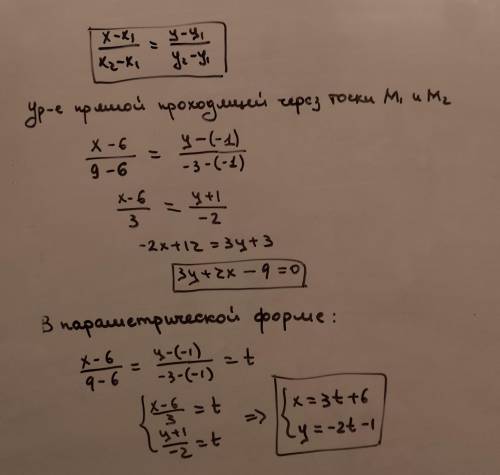 x-x₁/x₂-x₁ = y-y₁/y₂-y₁
Ур-е прямой проходящей через точки M₁ и M₂
x-6/9-6 = y-(-1)/-3-(-1)
x-6/3 = y+1/-2
-2x+12=3y+3
3y+2x-9=0
В параметрической форме:
x-6/9-6 = y-(-1)/-3-(-1) = t
{x-6/3 = t => {x=3t+6
y+1/-2 = t y=-2t-1